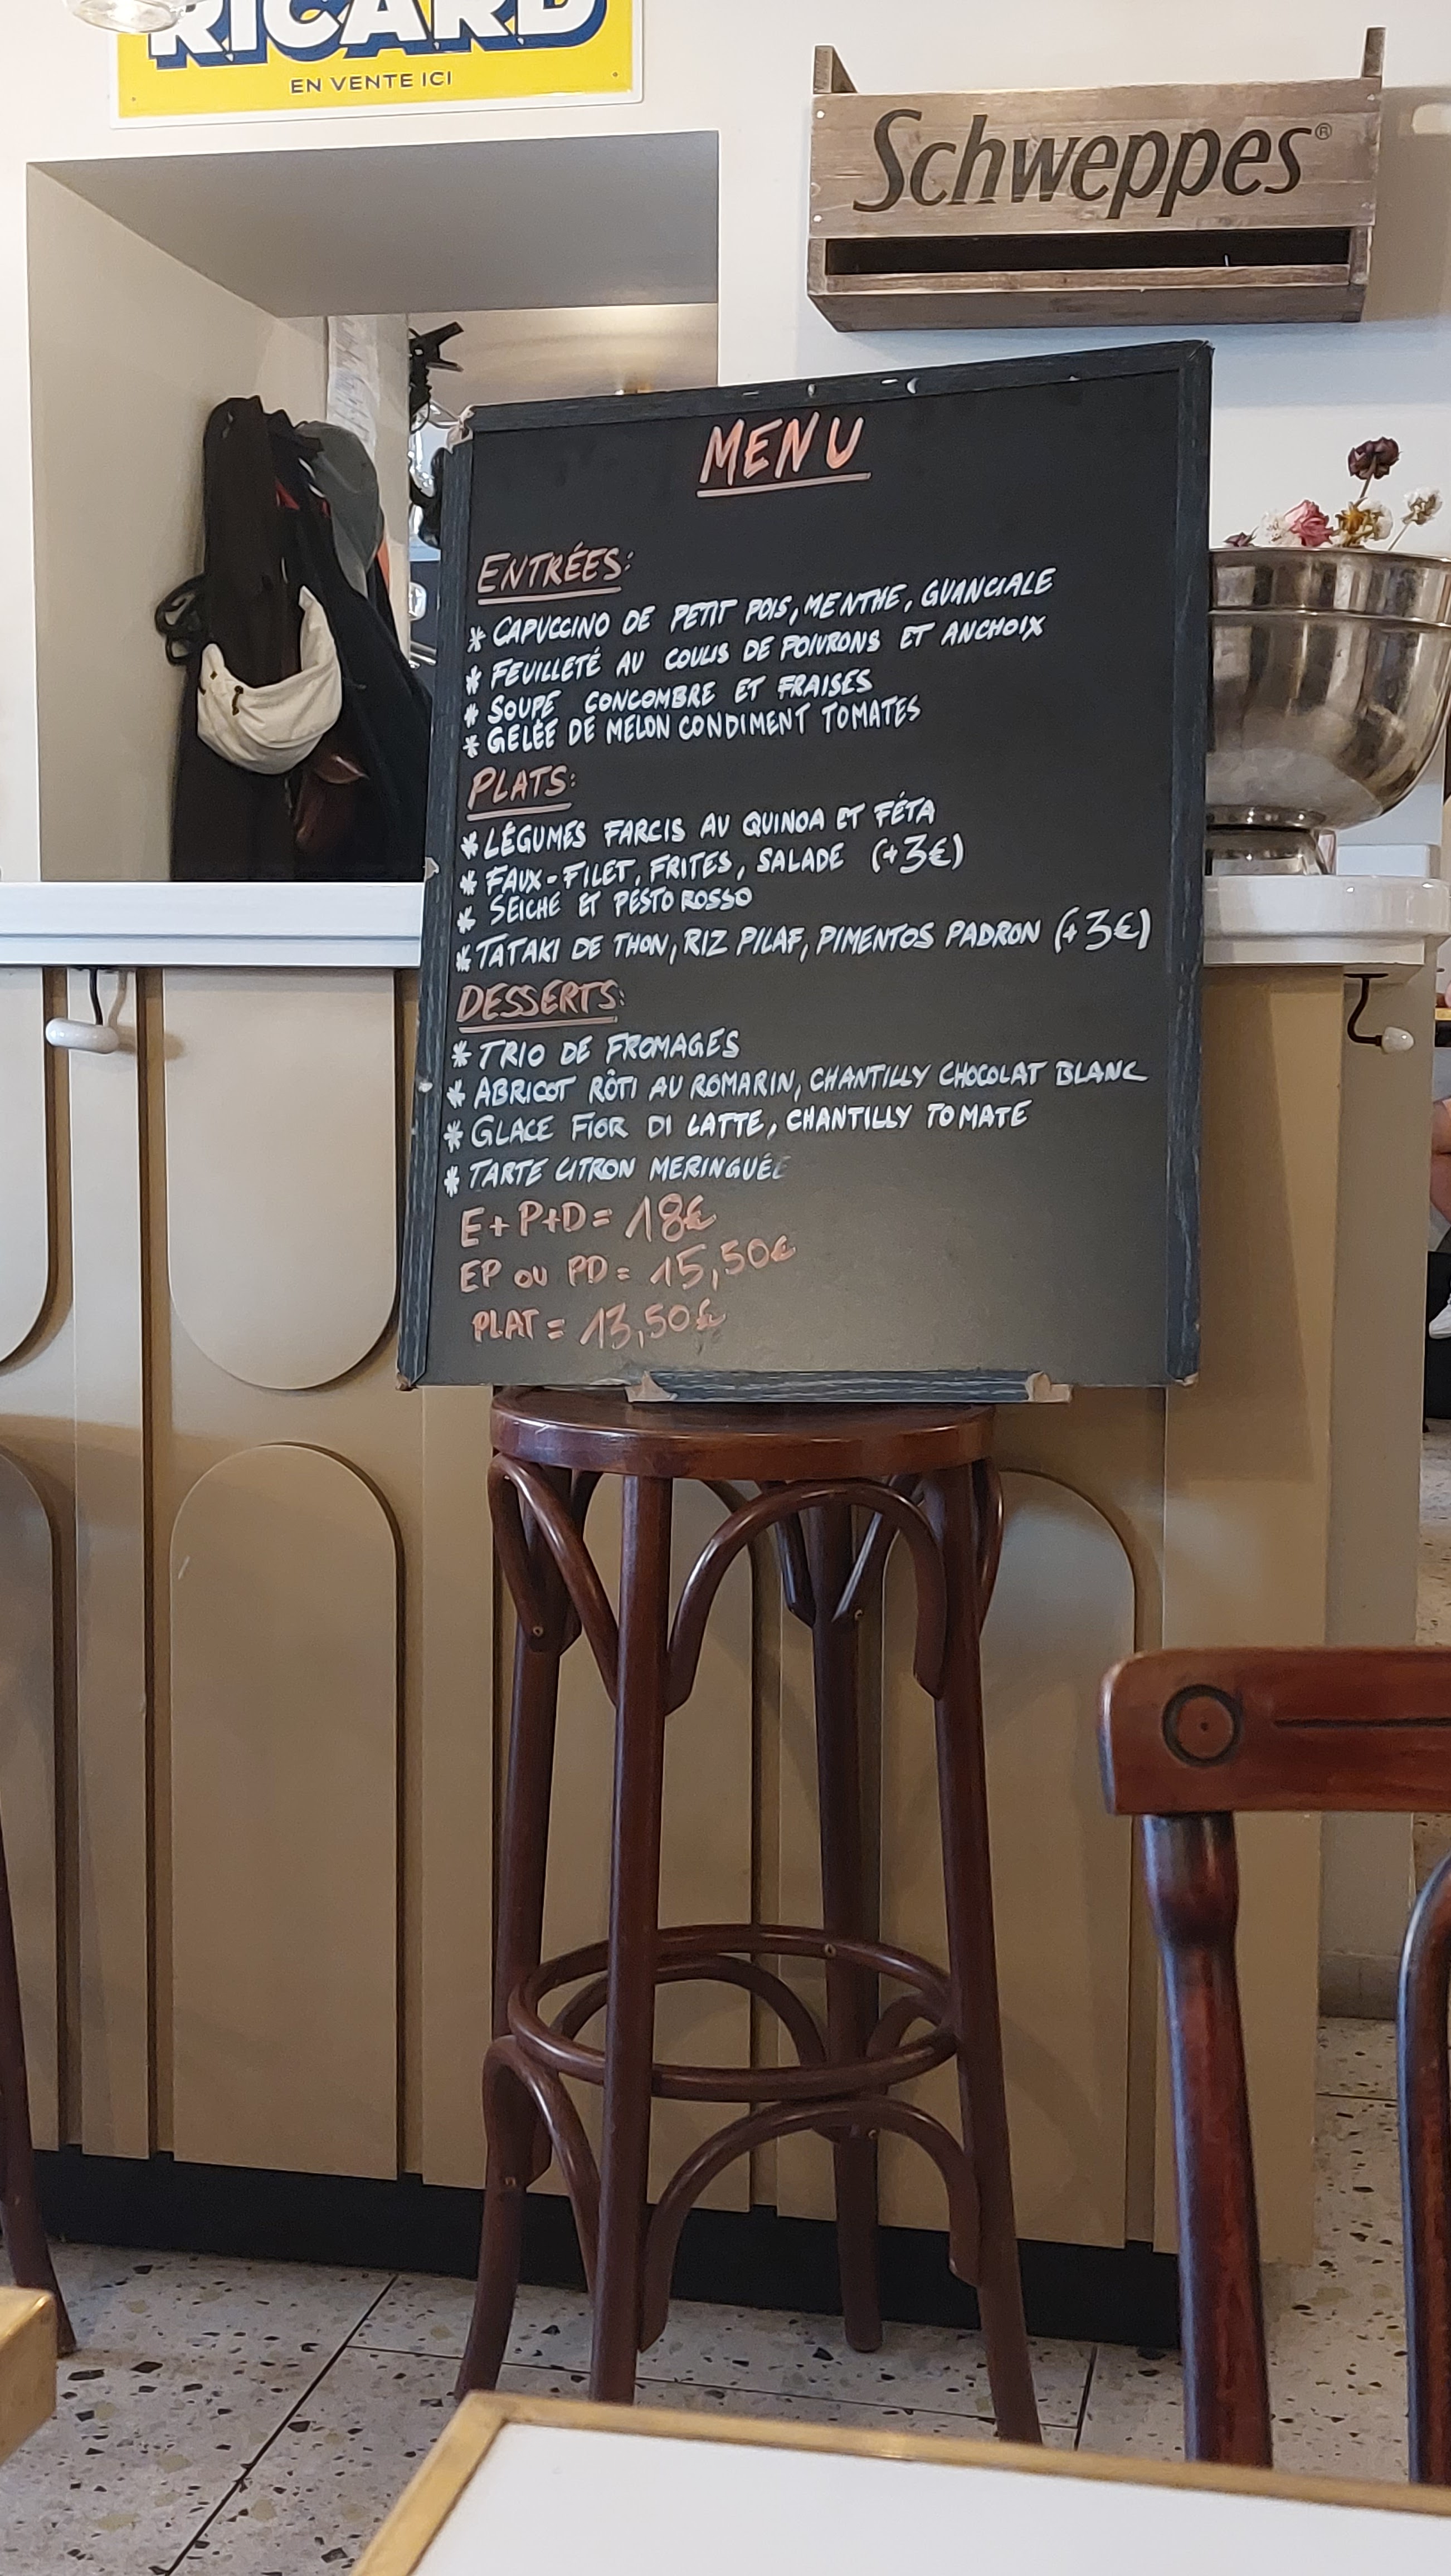 RICARD
EN VENTE ICI
Schweppes®
MENU
ENTRÉES:
* CAPUCCINO DE PETIT POIS, MENTHE, GUANCIALE
* FEUILLETÉ AU COULIS DE POIVRONS ET ANCHOIX
* SOUPE CONCOMBRE ET FRAISES
* GELÉE DE MELON CONDIMENT TOMATES
PLATS:
* LÉGUMES FARCIS AU QUINOA ET FÉTA
* FAUX-FILET, FRITES, SALADE (+3€)
* SEICHE ET PESTO ROSSO
* TATAKI DE THON, RIZ PILAF, PIMENTOS PADRON (+3€)
DESSERTS:
* TRIO DE FROMAGES
* ABRICOT RÔTI AU ROMARIN, CHANTILLY CHOCOLAT BLANC
* GLACE FIOR DI LATTE, CHANTILLY TOMATE
* TARTE CITRON MERINGUÉE
E+P+D = 18€
EP OU PD = 15,50€
PLAT = 13,50€